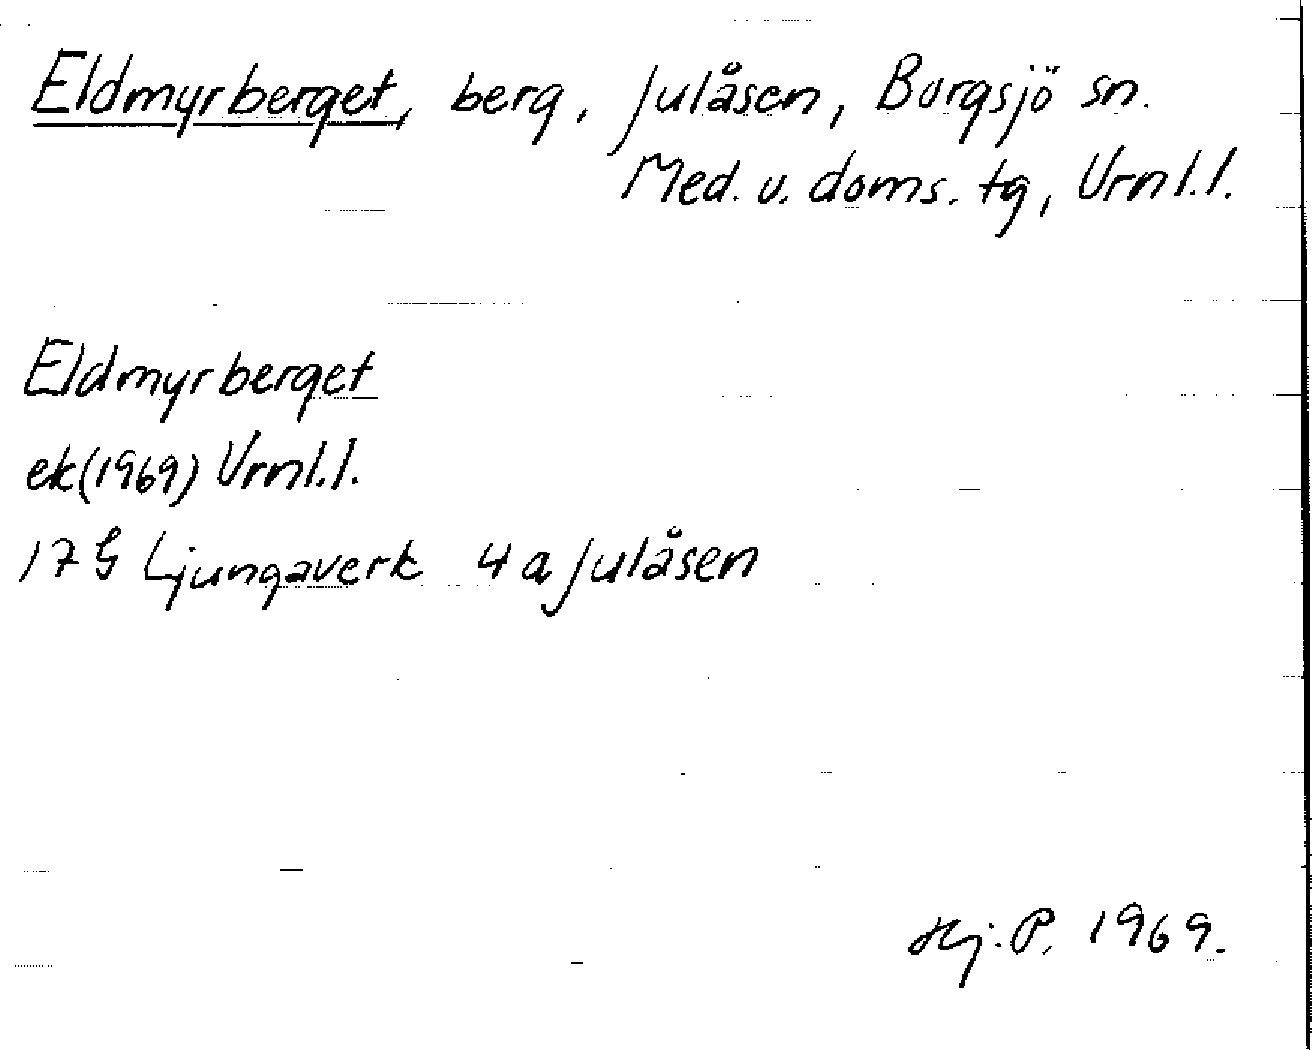 Eldmyrberget, berg, Julåsen, Borgsjö sn.
Med. v. doms. tg, Vrnl.l.
Eldmyrberget
ek(1969) Vrnl.l.
17 G Ljungaverk 4 a Julåsen
Hj. P. 1969.